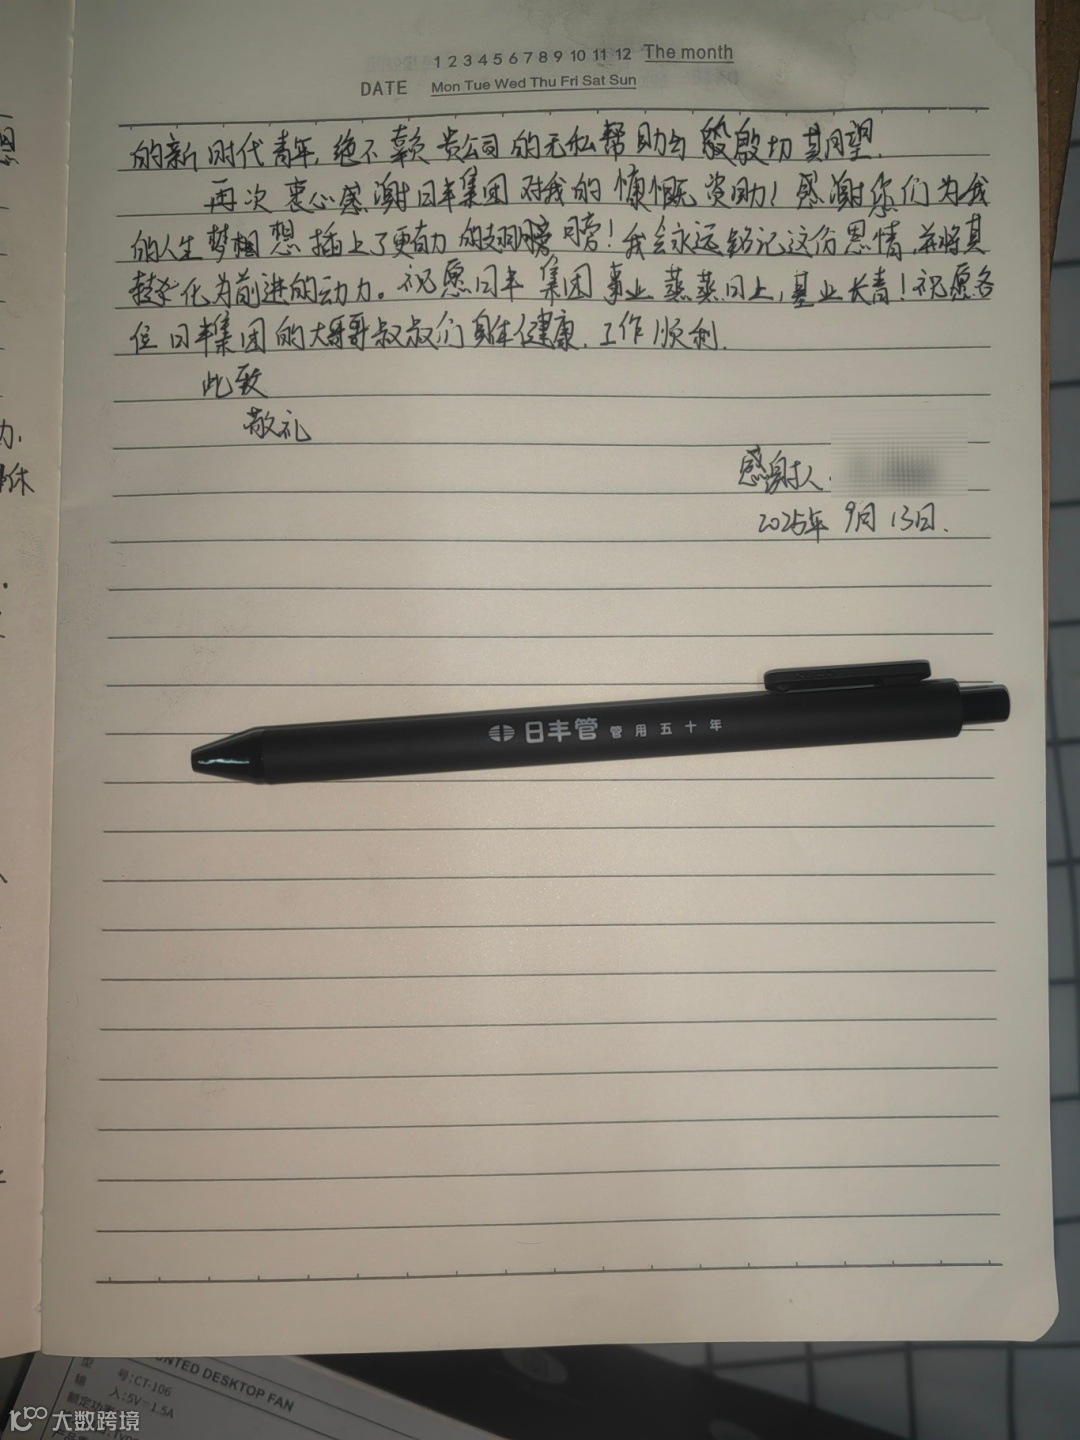 1 2 3 4 5 6 7 8 9 10 11 12 The month
DATE Mon Tue Wed Thu Fri Sat Sun
的新时代青年,绝不辜负贵公司的无私帮助与殷殷切其期望.
再次衷心感谢日丰集团对我的慷慨资助!感谢你们为我
的人生梦想想插上了更有力的翅膀!我会永远铭记这份恩情,并将其
转化为前进的动力。祝愿日丰集团事业蒸蒸日上,基业长青!祝愿各
位日丰集团的大哥哥叔叔们身体健康.工作顺利.
此致
敬礼
感谢人.
2025年9月13日.
日丰管 管用五十年
UNTED DESKTOP FAN
号:CT-106
入:5V⎓1.5A
额定功
大数跨境